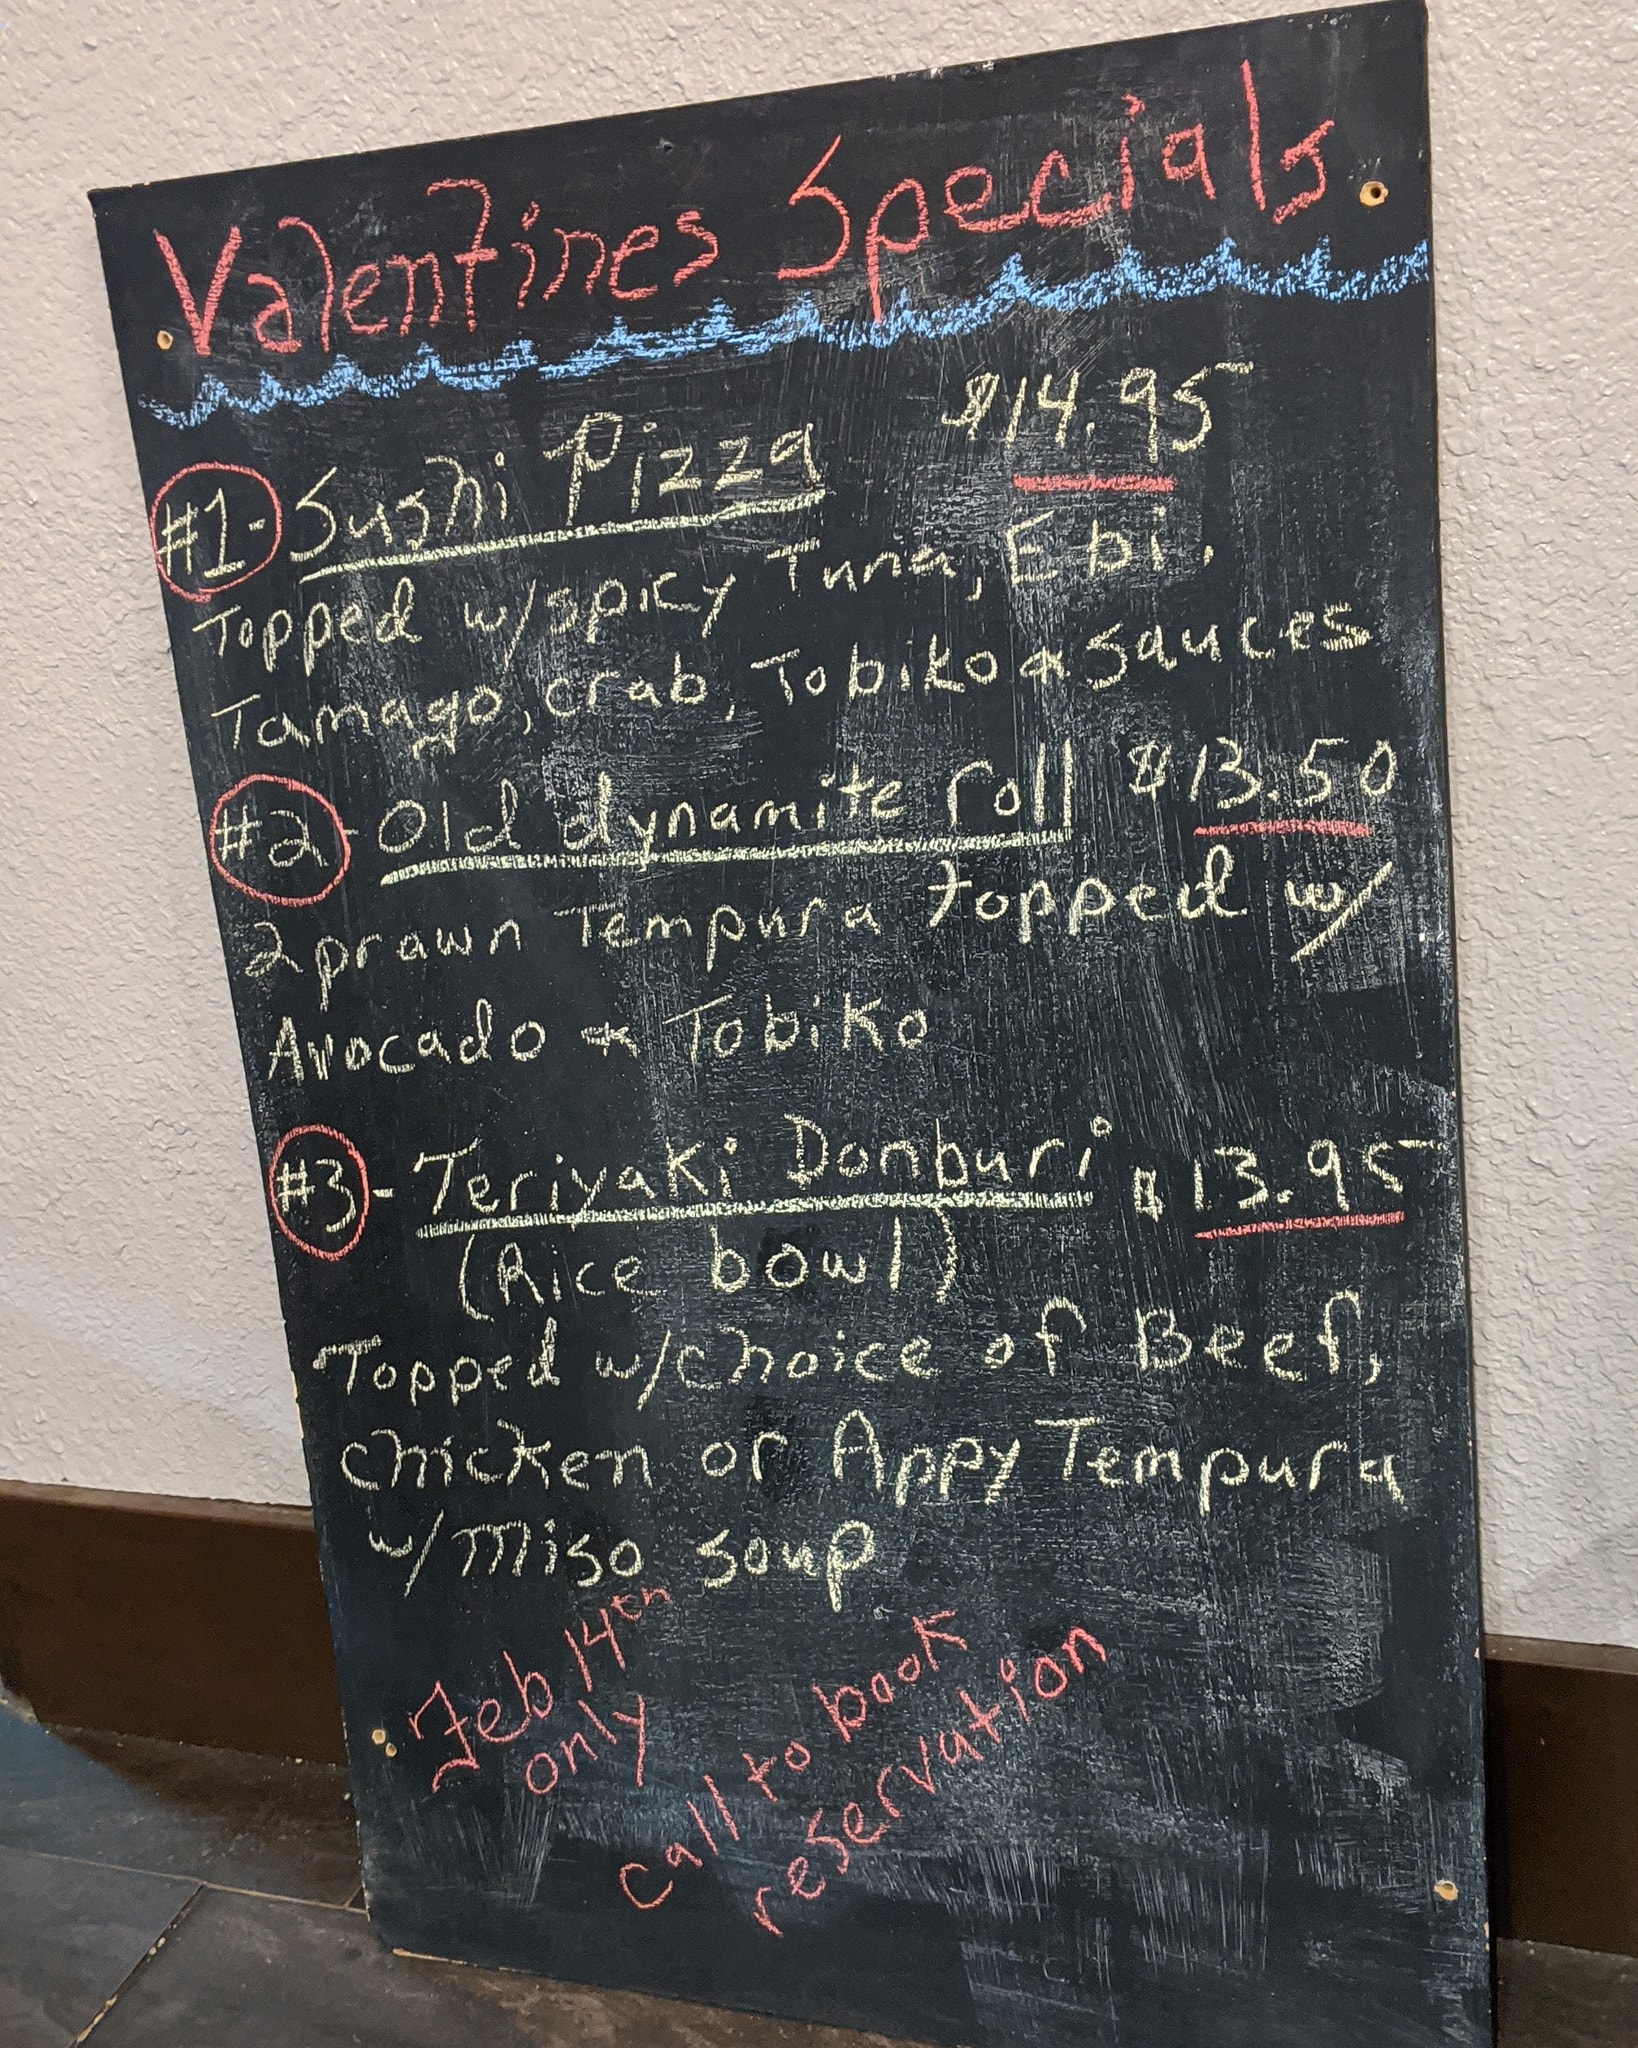 Valentines Specials
#1- Sushi Pizza $14.95
Topped w/spicy Tuna, Ebi,
Tamago, crab, Tobiko & sauces
#2- Old dynamite roll $13.50
2 prawn Tempura topped w/
Avocado & Tobiko
#3- Teriyaki Donburi $13.95
(Rice bowl)
Topped w/choice of Beef,
chicken or Appy Tempura
w/miso soup
Feb 14th
only
call to book
reservation